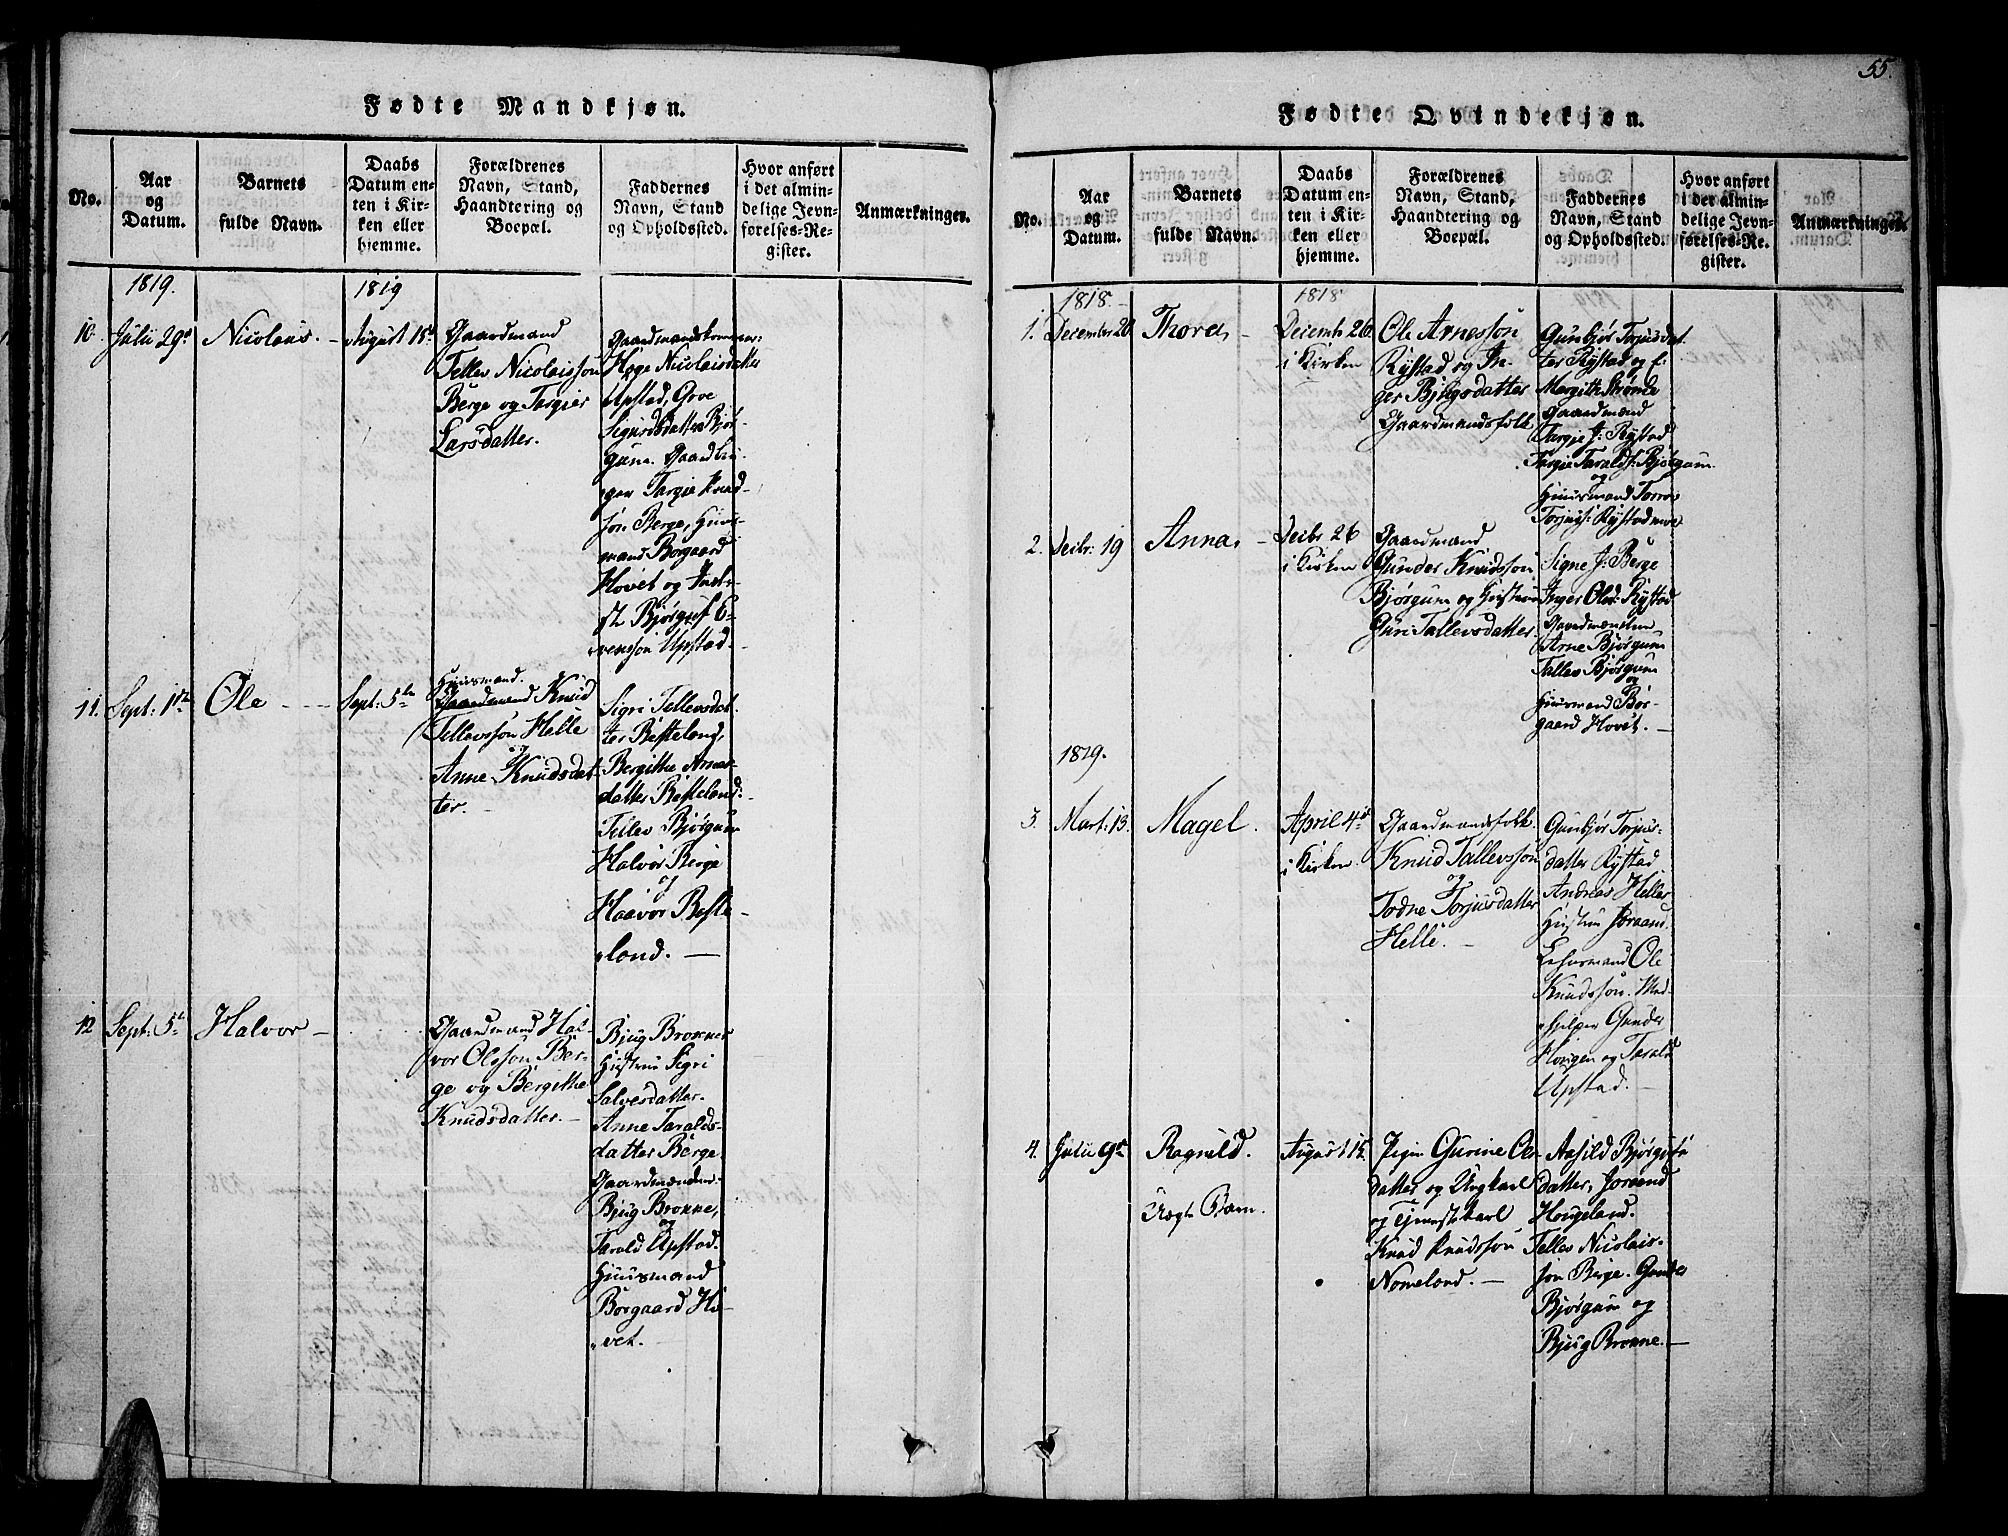 Fødte Mandkjøn.
No.
Aar
og
Datum.
Barnets
fulde Navn.
Daabs
Datum en-
ten i Kir-
ken eller
hjemme.
Forældrenes
Navn, Stand,
Haandtering og
Boepæl.
Faddernes
Navn, Stand
og Opholdssted.
Hvor anført
i det almin-
delige Jevn-
førelses-Re-
gister.
Anmærkninger.
1819.
1819
10.
Julii 29de
Nicolaus.
August 15de
Gaardmand
Tellev Nicolaisson
Berge og Torgier
Larsdatter.
Gaardmandskonerne:
Høge Nicolaisdatter
Upstad, Groe
Sigurdsdatter Bjør-
gum. Gaardbru-
ger Targie Knud-
søn Berge, Huus-
mand Borgaard
Hovet og Inder-
st Bjørguf E-
venssøn Upstad.
11.
Sept: 1ste
Ole
Sept: 5te
Huusmand.
Gaardmand Knud
Tellevssøn Helle
og
Anne Knudsdat-
ter.
Sigri Tellevsdat-
ter Besteland,
Bergithe Arnes-
datter Besteland.
Tellev Bjørgum
Halvor Berge
og
Haavor Beste-
land.
12
Sept: 5te
Halvor
Gaardmand Hal-
vor Olssøn Ber-
ge og Bergithe
Knudsdatter.
Bjug Bronnes
Hustrue Sigri
Salvesdatter.
Anne Taralds-
datter Berge.
Gaardmændene
Bjug Bronne,
og
Tarald Upstad.
Huusmand
Borgaard Ho-
vet.
55.
Fødte Qvindekjøn.
No.
Aar
og
Datum.
Barnets
fulde Navn.
Daabs
Datum en-
ten i Kir-
ken eller
hjemme.
Forældrenes
Navn, Stand,
Haandtering og
Boepæl.
Faddernes
Navn, Stand
og Opholdssted.
Hvor anført
i der almin-
delige Jevn-
førelses-Re-
gister.
Anmærkninger.
1818.
1818
1.
December 20
Thora
Decembr 26
i Kirken
Ole Arnesson
Rystad og In-
ger Bjugsdatter
Gaardmandsfolk
Gunbjør Torjusdat
ter Rystad og
Margith Strømme
Gaardmænd
Targie J: Rystad
Targie Taralds: Bjørgum
og
Huusmand Torres
Torjus: Rystadmoe
2.
Decbr: 19
Anna
Decbr 26
i Kirken
Gaardmand
Gunder Knudsson
Bjørgum og Hustrue
Guri Tallevsdatter
Signe J: Berge
Inger Olsd: Rystad
Gaardmændene
Arne Bjørgum
Tallev Bjørgum
og
Huusmand Bor-
gaard Hovet.
1819.
3.
Mart: 13.
Magel.
April 4de
i Kirken
Gaardmandsfolk
Knud Tallevsson
og
Todne Torjusdatter
Helle.
Gunbjør Torjus-
datter Rystad
Andreas Helles
Hustrue Joraand.
Lehnsmand Ole
Knudsson. Med-
hjelper Gunder
Hovgen og Tarald
Upstad.
4.
Julii 9de
Ragnild.
Uægte Barn.
August 15.
Pigen Gurine
datter og Ungkarl
og Tjenestekarl
Knud Knudssøn
Nomeland.
Aasild Bjørgufs
datter, Joraand
Hougeland.
Tellev Nicolais-
søn Berge. Gunder
Bjørgum og
Bjug Bronne.